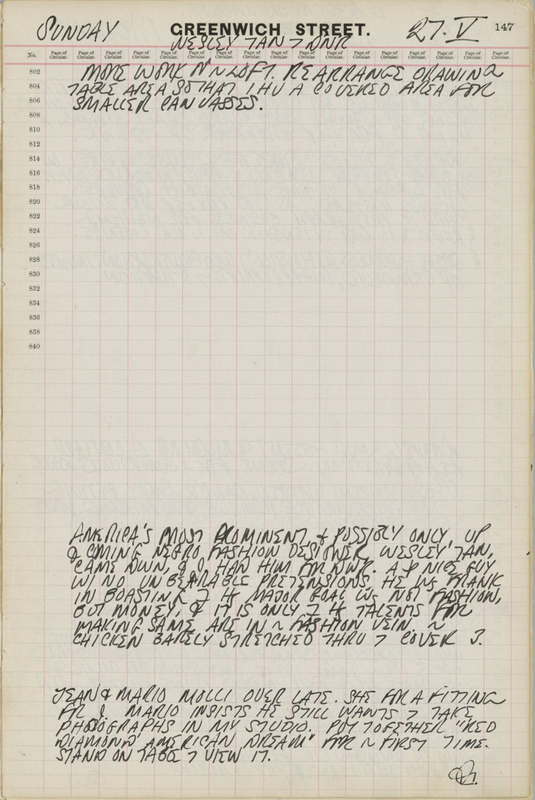 SUNDAY GREENWICH STREET. 27. V 147
WESLEY TAN 7 DNR
No. Page of Circular. Page of Circular. Page of Circular. Page of Circular. Page of Circular. Page of Circular. Page of Circular. Page of Circular. Page of Circular. Page of Circular. Page of Circular. Page of Circular. Page of Circular. Page of Circular. Page of Circular. Page of Circular.
802 MORE WORK N LOFT. REARRANGE DRAWING
804 TABLE AREA SO THAT I HV A COVERED AREA FOR
806 SMALLER CANVASSES.
808
810
812
814
816
818
820
822
824
826
828
830
832
834
836
838
840
AMERICA'S MOST PROMINENT, & POSSIBLY ONLY UP
& COMING NEGRO FASHION DESIGNER, WESLEY TAN,
CAME DWN, & HAN HIM FOR DNR. A NICE GUY
W NO UNBEARABLE PRETENSIONS. HE IS FRANK
IN BOASTING 7 H MAJOR GOAL IS NOT FASHION,
BUT MONEY, & IT IS ONLY 7 H TALENTS FOR
MAKING SAME ARE IN ~ FASHION VEIN ~
CHICKEN BARELY STRETCHED THRU 7 COVER 3.
JEAN & MARIO MOLLI OVER LATE. SHE FOR A FITTING
FOR I. MARIO INSISTS HE STILL WANTS 7 TAKE
PHOTOGRAPHS IN MY STUDIO. PUT TOGETHER "RED
DIAMOND AMERICAN DREAM" FOR ~ FIRST TIME.
STAND ON TABLE 7 VIEW IT.